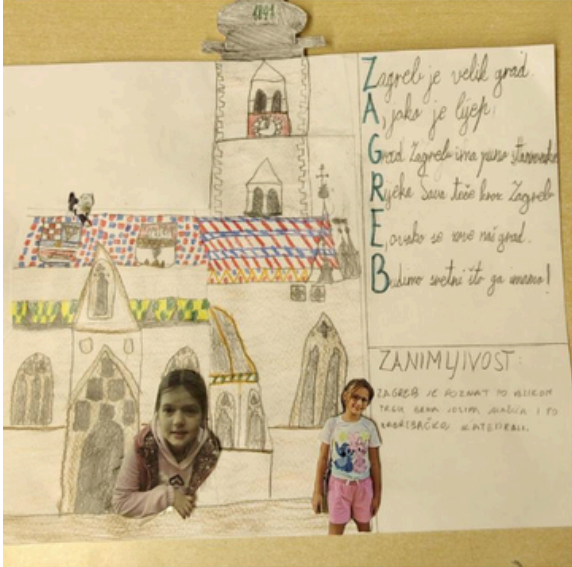 1841
Zagreb je velik grad.
A, jako je lijep.
Grad Zagreb ima puno stanovnika
Rijeka Sava teče kroz Zagreb
E, ovako se zove naš grad.
Budimo sretni što ga imamo!
ZANIMLJIVOST:
ZAGREB JE POZNAT PO VELIKOM
TRGU BANA JOSIPA JELAČIĆA I PO
ZAGREBAČKOJ KATEDRALI.